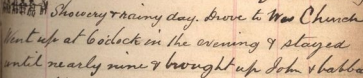 Showery & rainy day. Drove to Wes Church
Went up at 6 o'clock in the evening & stayed
until nearly nine & brought up John &